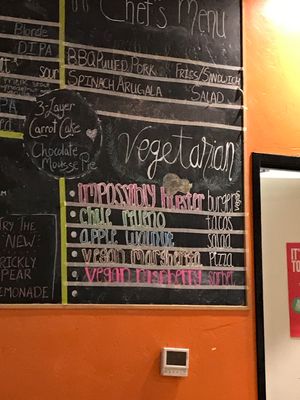 Chef's Menu
Blonde
DIPA
Sour
BBQ Pulled Pork
Fries/Sndwich
Spinach Arugala
Salad
3-Layer
Carrot Cake
Chocolate
Mousse Pie
Vegetarian
Impossibly hipster burger
Vegan
Chile relleno tacos
apple walnut salad
Vegan margherita pizza
Vegan raspberry sorbet
TRY THE
"NEW"
PRICKLY
PEAR
LEMONADE